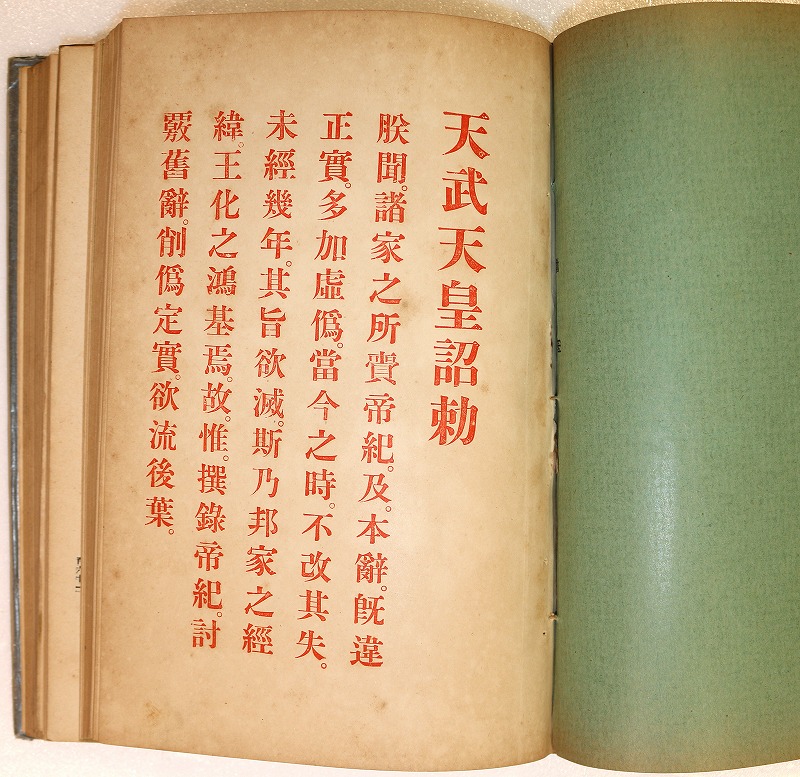 天武天皇詔勅
朕聞。諸家之所賷帝紀。及。本辭。既違
正實。多加虛僞。當今之時。不改其失。
未經幾年。其旨欲滅。斯乃邦家之經
緯。王化之鴻基焉。故。惟。撰錄帝紀。討
覈舊辭。削僞定實。欲流後葉。